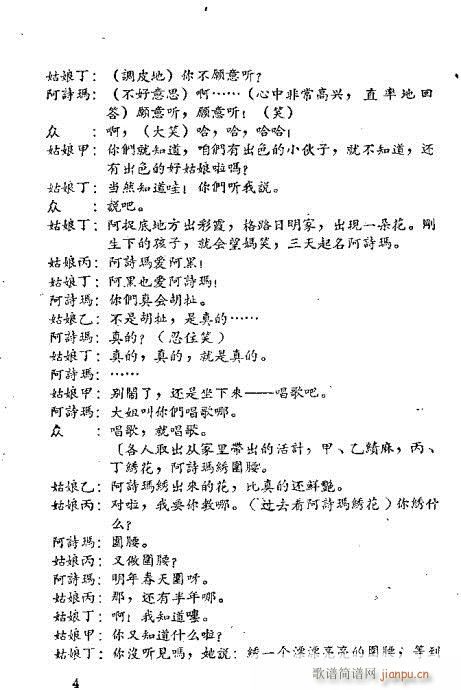 姑娘丁：（調皮地）你不願意听？
阿詩瑪：（不好意思）啊……（心中非常高兴，直率地回
答）願意听，願意听！（笑）
众　　：啊，（大笑）哈，哈，哈哈！
姑娘甲：你們就知道，咱們有出色的小伙子，就不知道，还
有出色的好姑娘啦嗎？
姑娘丁：当然知道哇！你們听我說。
众　　：說吧。
姑娘丁：阿捉底地方出彩霞，格路日明家，出現一朵花。剛
生下的孩子，就会望媽笑，三天起名阿詩瑪。
姑娘丙：阿詩瑪爱阿黑！
姑娘丁：阿黑也爱阿詩瑪！
阿詩瑪：你們真会胡扯。
姑娘乙：不是胡扯，是真的……
阿詩瑪：真的？（忍住笑）
姑娘丁：真的，真的，就是真的。
阿詩瑪：……
姑娘甲：别鬧了，还是坐下来——唱歌吧。
阿詩瑪：大姐叫你們唱歌哪。
众　　：唱歌，就唱歌。
〔各人取出从家里帶出的活計，甲、乙績麻，丙、
丁綉花，阿詩瑪綉圍腰。
姑娘乙：阿詩瑪綉出来的花，比真的还鮮艷。
姑娘丙：对啦，我要你教哪。（过去看阿詩瑪綉花）你綉什
么？
阿詩瑪：圍腰。
姑娘丙：又做圍腰？
阿詩瑪：明年春天圍呀。
姑娘丙：那，还有半年哪。
姑娘丁：啊！我知道嘍。
姑娘甲：你又知道什么啦？
姑娘丁：你沒听見嗎，她說：綉一个漂漂亮亮的圍腰，等到
4
歌谱简谱网
jianpu.cn